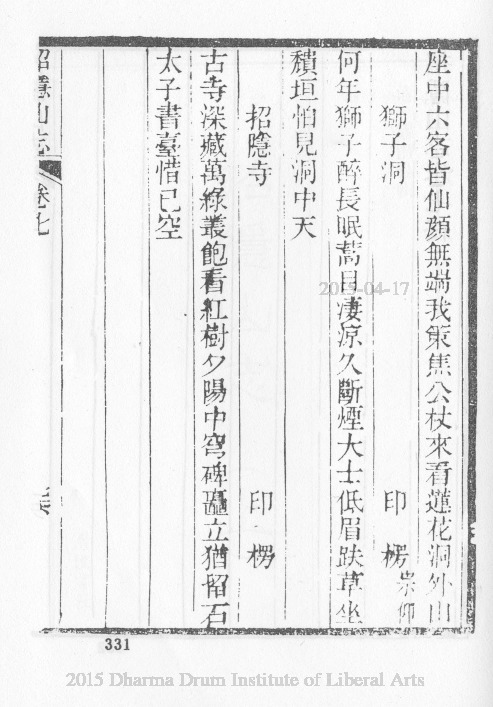 座中六客皆仙顔無端我策焦公杖來看蓮花洞外山
獅子洞 印楞 宗仰
何年獅子醉長眠蒿目淒涼久斷煙大士低眉趺草坐
頹垣怕見洞中天
招隱寺 印楞
古寺深藏萬綠叢飽看紅樹夕陽中穹碑矗立猶留石
太子書臺惜已空
招隱山志 卷七
2015-04-17
331
2015 Dharma Drum Institute of Liberal Arts